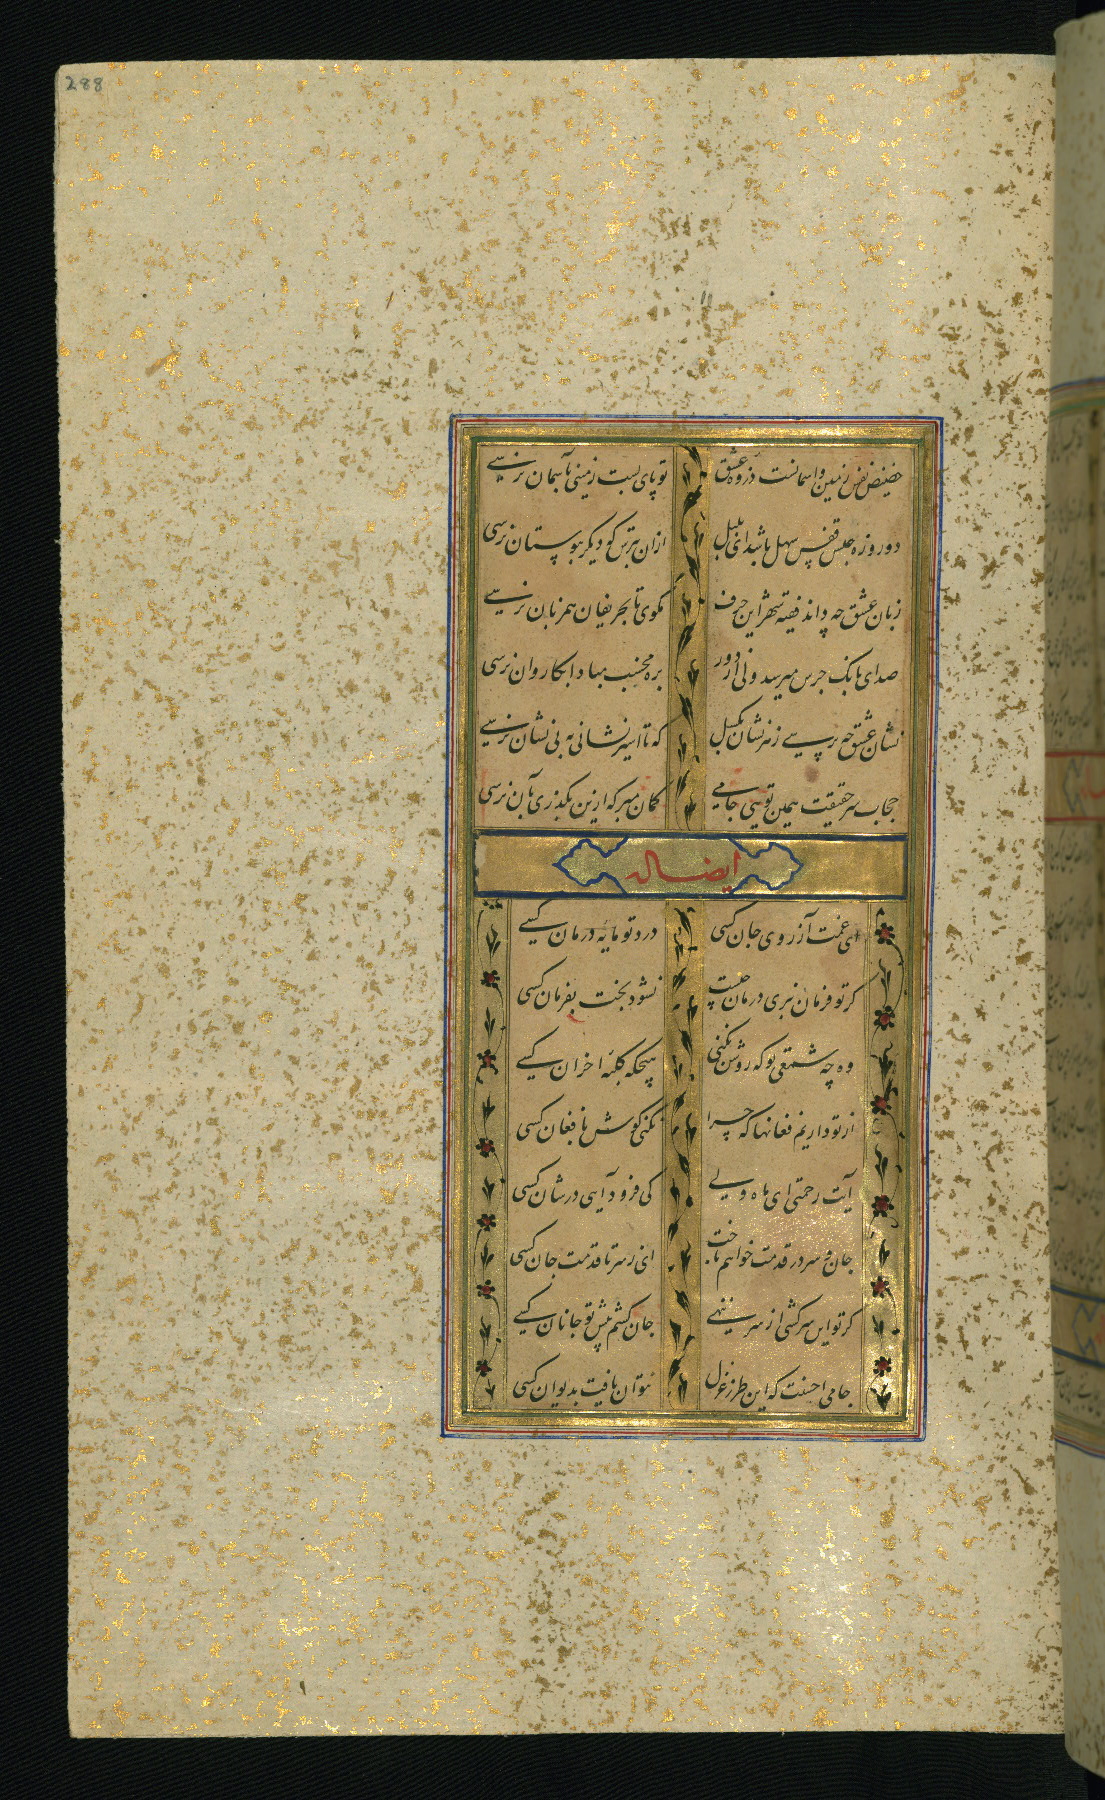 288
حضیض نفس زمین و اسمانست ذروه عشق تو پای بست زمینی بآسمان نرسی
دو روزه حبس قفس سهل باشد ای بلبل ازان بترس که دیگر ببوستان نرسی
زبان عشق چه داند فقیه شهر این حرف مگوی تا بحریفان همزبان نرسی
صدای بانک جرس میرسد ولی از دور بره مخسب مبادا بکاروان نرسی
نشان عشق چه پرسی ز هر نشان بکسل که تا اسیر نشانی به بی نشان نرسی
حجاب سر حقیقت همین تویی جامی گمان مبر که ازین نگذری بآن نرسی
ایضا له
ای غمت آرزوی جان کسی درد تو مایه درمان کسی
کر تو فرمان نبری درمان چیست نشود بخت بفرمان کسی
وه چه شمعی تو که روشن نکنی هیچکه کلبه احزان کسی
از تو داریم فغانها که چرا نکنی کوش بافغان کسی
آیت رحمتی ای ماه ولی کی فرود آیی در شان کسی
جان و سر در قدمت خواهم باخت ای ز سر تا قدمت جان کسی
کر تو این سرکشی از سر بنهی جان کشم پیش تو جانان کسی
جامی احسنت که این طرز غزل نتوان یافت بدیوان کسی